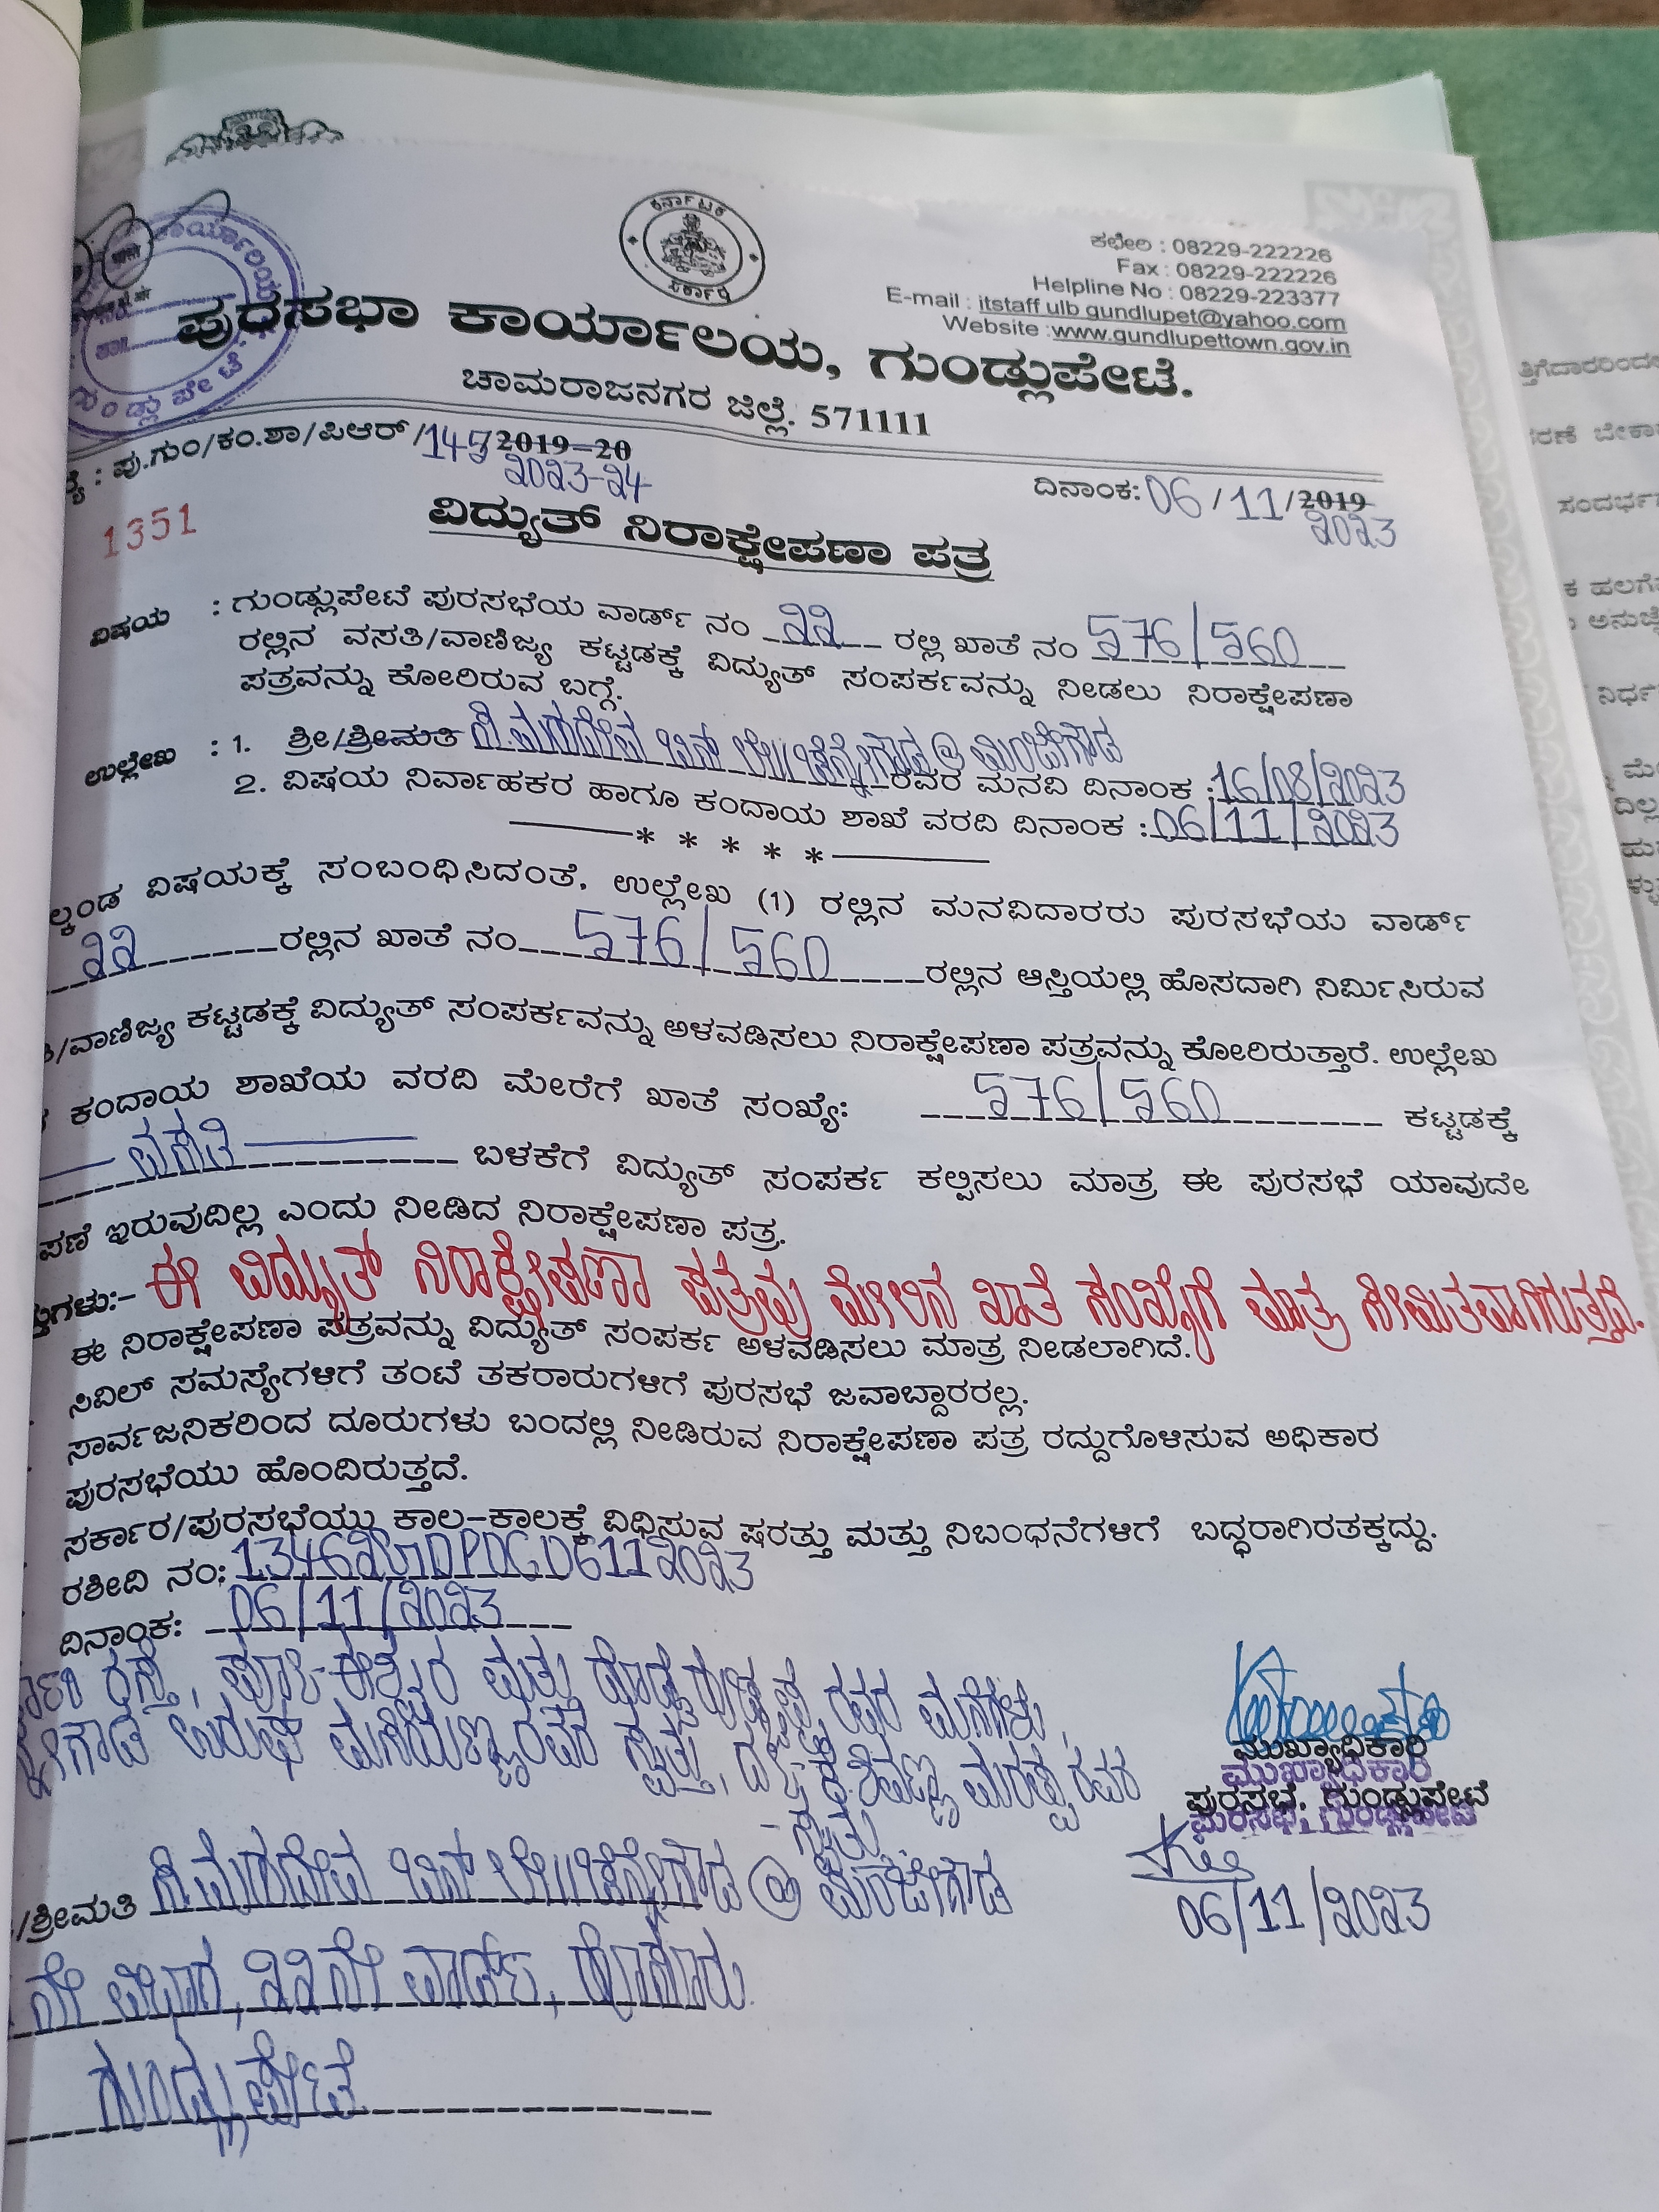 ಕರ್ನಾಟಕ
ಸರ್ಕಾರ
ಕಛೇರಿ : 08229-222226
Fax : 08229-222226
Helpline No : 08229-223377
E-mail : itstaff ulb gundlupet@yahoo.com
Website :www.gundlupettown.gov.in
ಪುರಸಭಾ ಕಾರ್ಯಾಲಯ, ಗುಂಡ್ಲುಪೇಟೆ.
ಚಾಮರಾಜನಗರ ಜಿಲ್ಲೆ. 571111
: ಪು.ಗುಂ/ಕಂ.ಶಾ/ಪಿಆರ್ /145/2019-20
2023-24
ದಿನಾಂಕ: 06/11/2019
2023
1351
ವಿದ್ಯುತ್ ನಿರಾಕ್ಷೇಪಣಾ ಪತ್ರ
ವಿಷಯ : ಗುಂಡ್ಲುಪೇಟೆ ಪುರಸಭೆಯ ವಾರ್ಡ್ ನಂ 22 ರಲ್ಲಿ ಖಾತೆ ನಂ 576/560
ರಲ್ಲಿನ ವಸತಿ/ವಾಣಿಜ್ಯ ಕಟ್ಟಡಕ್ಕೆ ವಿದ್ಯುತ್ ಸಂಪರ್ಕವನ್ನು ನೀಡಲು ನಿರಾಕ್ಷೇಪಣಾ
ಪತ್ರವನ್ನು ಕೋರಿರುವ ಬಗ್ಗೆ.
ಉಲ್ಲೇಖ : 1. ಶ್ರೀ/ಶ್ರೀಮತಿ ಸಿ.ಮಹದೇವ ಬಿನ್ ಲೇ||ಚಿನ್ನೇಗೌಡ @ ಮಂಚೇಗೌಡ
ರವರ ಮನವಿ ದಿನಾಂಕ :16/08/2023
2. ವಿಷಯ ನಿರ್ವಾಹಕರ ಹಾಗೂ ಕಂದಾಯ ಶಾಖೆ ವರದಿ ದಿನಾಂಕ :06/11/2023
* * * * *
ಲ್ಕಂಡ ವಿಷಯಕ್ಕೆ ಸಂಬಂಧಿಸಿದಂತೆ, ಉಲ್ಲೇಖ (1) ರಲ್ಲಿನ ಮನವಿದಾರರು ಪುರಸಭೆಯ ವಾರ್ಡ್
22 ರಲ್ಲಿನ ಖಾತೆ ನಂ 576/560 ರಲ್ಲಿನ ಆಸ್ತಿಯಲ್ಲಿ ಹೊಸದಾಗಿ ನಿರ್ಮಿಸಿರುವ
/ವಾಣಿಜ್ಯ ಕಟ್ಟಡಕ್ಕೆ ವಿದ್ಯುತ್ ಸಂಪರ್ಕವನ್ನು ಅಳವಡಿಸಲು ನಿರಾಕ್ಷೇಪಣಾ ಪತ್ರವನ್ನು ಕೋರಿರುತ್ತಾರೆ. ಉಲ್ಲೇಖ
ಕಂದಾಯ ಶಾಖೆಯ ವರದಿ ಮೇರೆಗೆ ಖಾತೆ ಸಂಖ್ಯೆ: 576/560 ಕಟ್ಟಡಕ್ಕೆ
ವಸತಿ ಬಳಕೆಗೆ ವಿದ್ಯುತ್ ಸಂಪರ್ಕ ಕಲ್ಪಿಸಲು ಮಾತ್ರ ಈ ಪುರಸಭೆ ಯಾವುದೇ
ಪಣೆ ಇರುವುದಿಲ್ಲ ಎಂದು ನೀಡಿದ ನಿರಾಕ್ಷೇಪಣಾ ಪತ್ರ.
ತ್ತುಗಳು:- ಈ ವಿದ್ಯುತ್ ನಿರಾಕ್ಷೇಪಣಾ ಪತ್ರವು ಮೇಲಿನ ಖಾತೆ ಸಂಖ್ಯೆಗೆ ಮಾತ್ರ ಸೀಮಿತವಾಗಿರುತ್ತದೆ.
ಈ ನಿರಾಕ್ಷೇಪಣಾ ಪತ್ರವನ್ನು ವಿದ್ಯುತ್ ಸಂಪರ್ಕ ಅಳವಡಿಸಲು ಮಾತ್ರ ನೀಡಲಾಗಿದೆ.
ಸಿವಿಲ್ ಸಮಸ್ಯೆಗಳಿಗೆ ತಂಟೆ ತಕರಾರುಗಳಿಗೆ ಪುರಸಭೆ ಜವಾಬ್ದಾರರಲ್ಲ.
ಸಾರ್ವಜನಿಕರಿಂದ ದೂರುಗಳು ಬಂದಲ್ಲಿ ನೀಡಿರುವ ನಿರಾಕ್ಷೇಪಣಾ ಪತ್ರ ರದ್ದುಗೊಳಿಸುವ ಅಧಿಕಾರ
ಪುರಸಭೆಯು ಹೊಂದಿರುತ್ತದೆ.
ಸರ್ಕಾರ/ಪುರಸಭೆಯು ಕಾಲ-ಕಾಲಕ್ಕೆ ವಿಧಿಸುವ ಷರತ್ತು ಮತ್ತು ನಿಬಂಧನೆಗಳಿಗೆ ಬದ್ಧರಾಗಿರತಕ್ಕದ್ದು.
ರಶೀದಿ ನಂ:
ದಿನಾಂಕ: 06/11/2023
ರಸ್ತೆ, ಪೂ:- ಈಶ್ವರ ಮತ್ತು ರವರ ಮನೆಗಳು,
ಸ್ವತ್ತು, ರವರ
ಸ್ವತ್ತು
ಮುಖ್ಯಾಧಿಕಾರಿ
ಮುಖ್ಯಾಧಿಕಾರಿ
ಪುರಸಭೆ, ಗುಂಡ್ಲುಪೇಟೆ
ಪುರಸಭೆ, ಗುಂಡ್ಲುಪೇಟೆ
06/11/2023
/ಶ್ರೀಮತಿ ಸಿ.ಮಹದೇವ ಬಿನ್ ಲೇ||ಚಿನ್ನೇಗೌಡ @ ಮಂಚೇಗೌಡ
ನೇ ವಿಭಾಗ, 22ನೇ ವಾರ್ಡ್, ಹೊಸೂರು
ಗುಂಡ್ಲುಪೇಟೆ